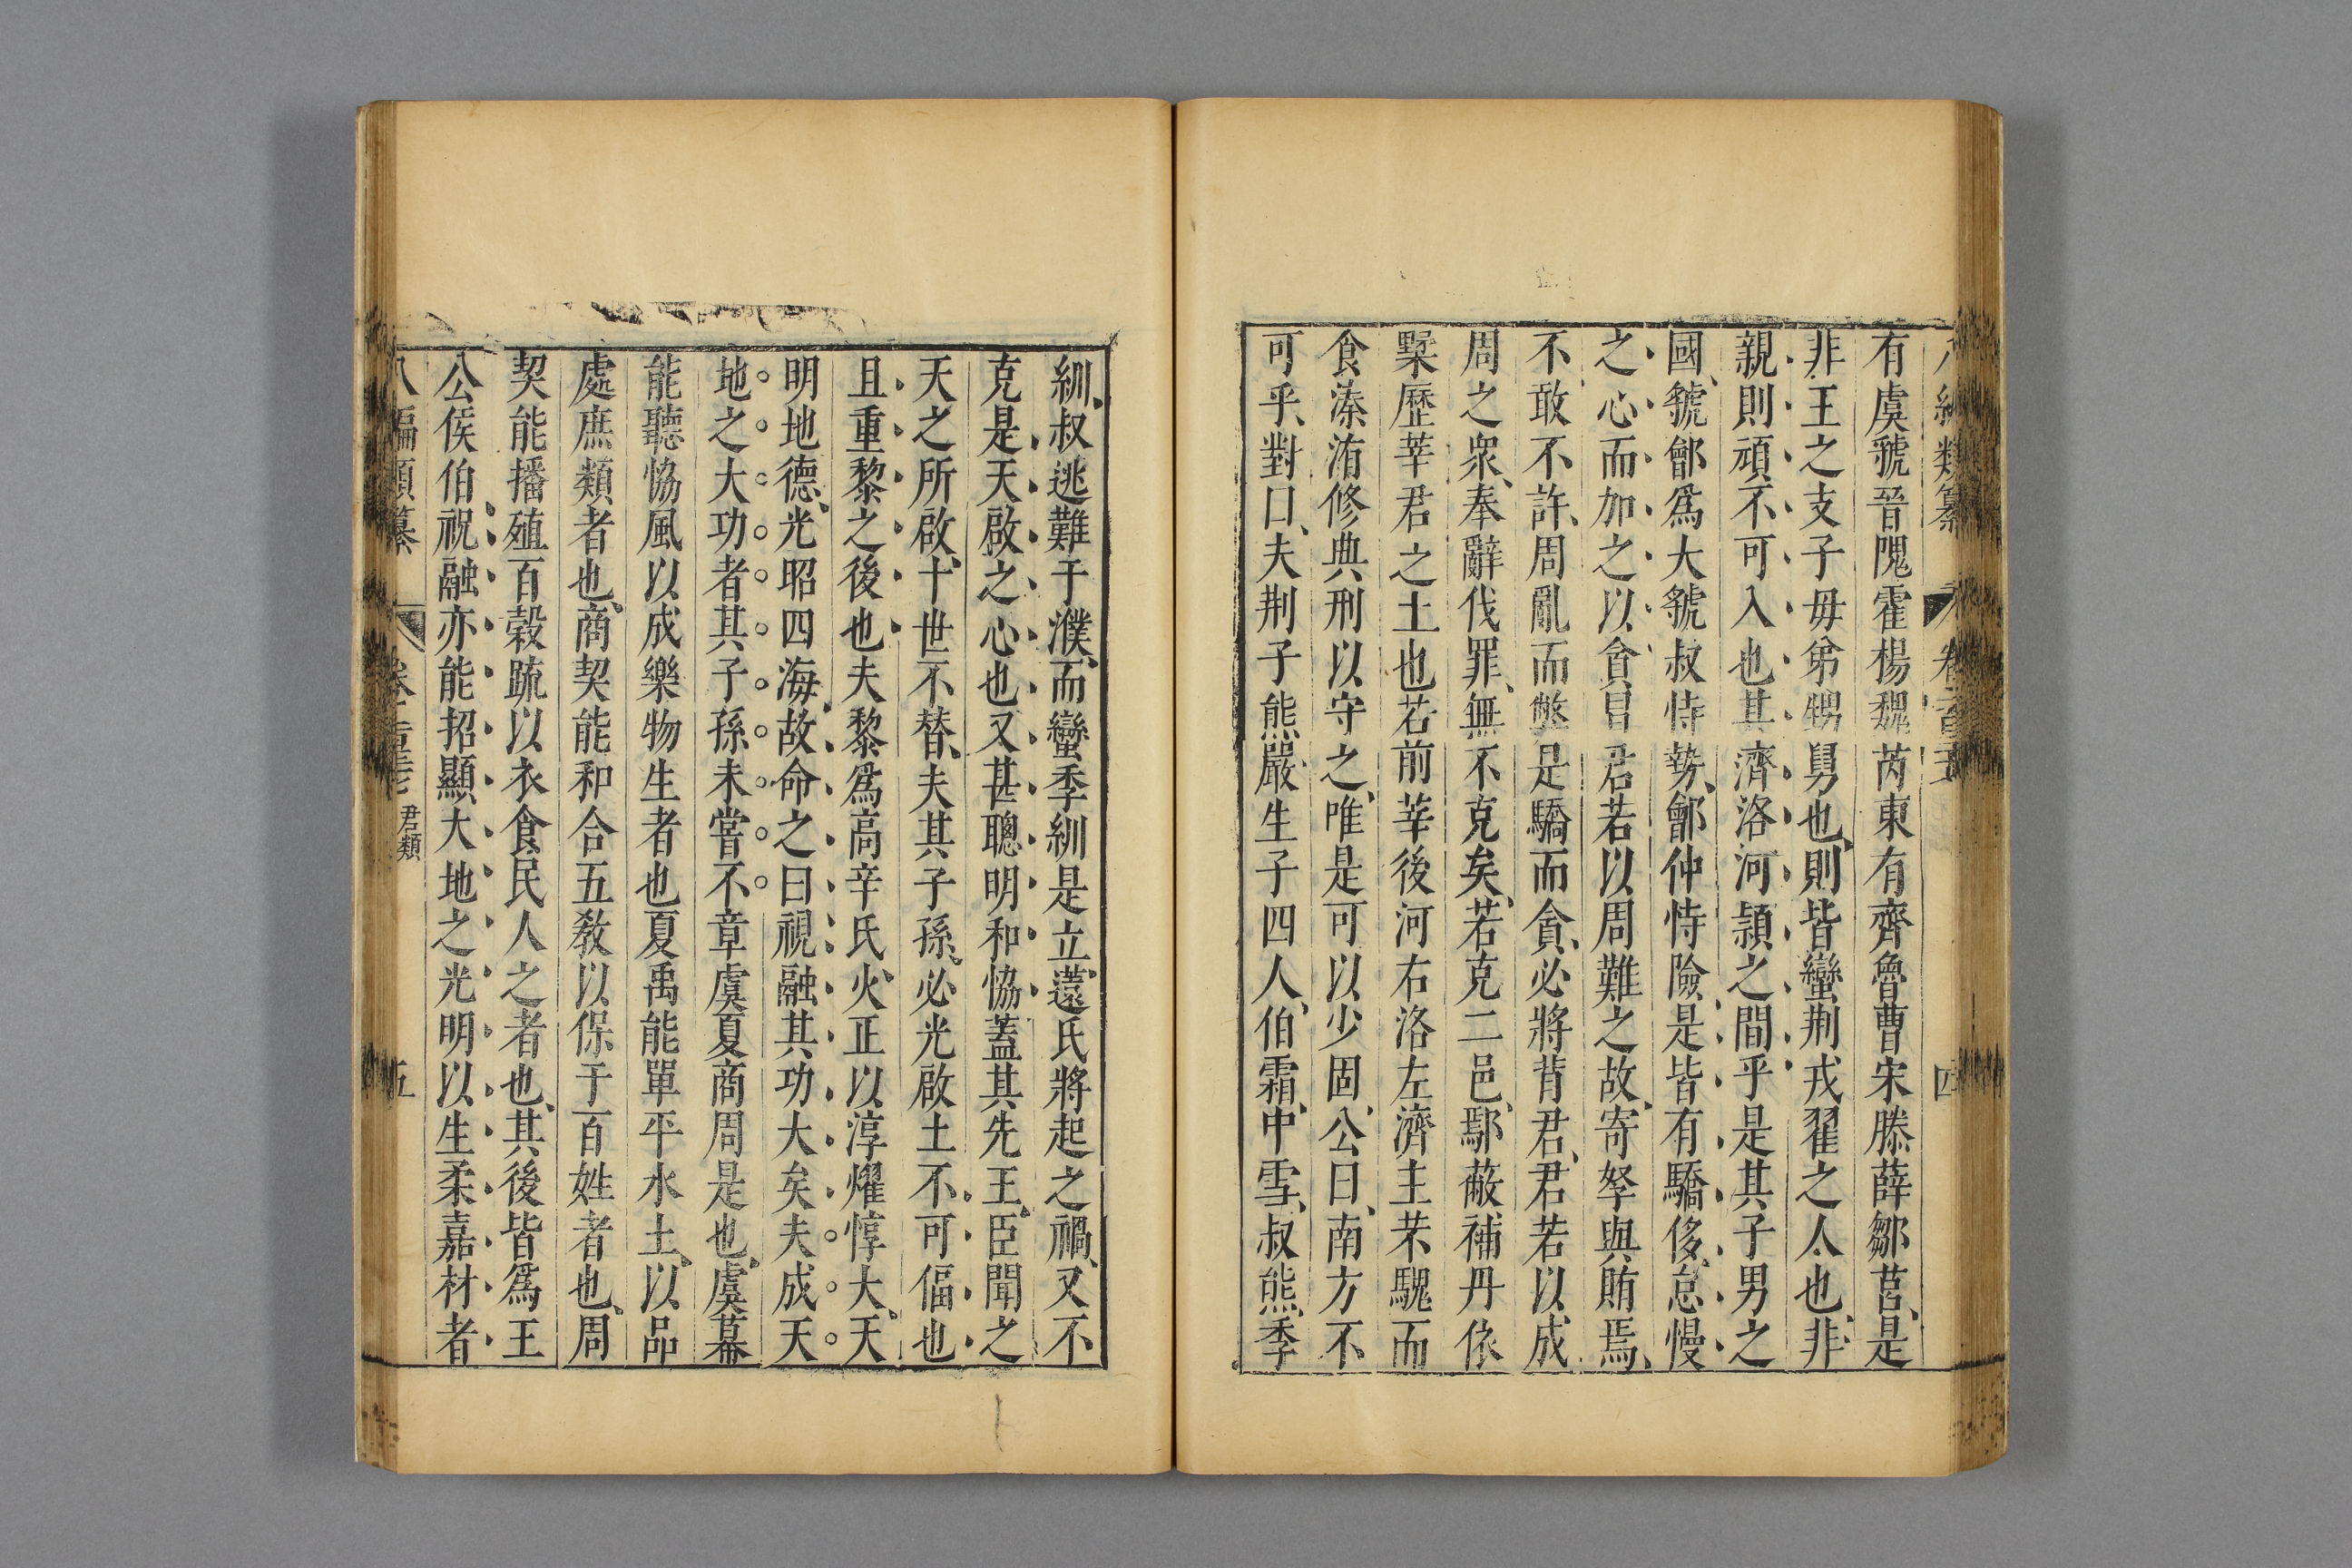 有虞虢晉隗霍楊魏芮東有齊魯曹宋滕薛鄒莒是
非王之支子毋弟甥舅也則皆蠻荆戎翟之人也非
親則頑不可入也其濟洛河潁之間乎是其子男之
國虢鄶爲大虢叔恃勢鄶仲恃險是皆有驕侈怠慢
之心而加之以貪冒君若以周難之故寄孥與賄焉
不敢不許周亂而弊是驕而貪必將背君君若以成
周之衆奉辭伐罪無不克矣若克二邑鄢蔽補丹依
𪑝歷莘君之土也若前莘後河右洛左濟主芣騩而
食溱洧修典刑以守之唯是可以少固公曰南方不
可乎對曰夫荆子熊嚴生子四人伯霜中雪叔熊季
紃叔逃難于濮而蠻季紃是立薳氏將起之禍又不
克是天啟之心也又甚聰明和協蓋其先王臣聞之
天之所啟十世不替夫其子孫必光啟土不可偪也
且重黎之後也夫黎爲高辛氏火正以淳燿惇大天
明地德光昭四海故命之曰祝融其功大矣夫成天
地之大功者其子孫未嘗不章虞夏商周是也虞幕
能聽協風以成樂物生者也夏禹能單平水土以品
處庶類者也商契能和合五敎以保于百姓者也周
契能播殖百穀疏以衣食民人之者也其後皆爲王
公侯伯祝融亦能招顯大地之光明以生柔嘉材者
八編類纂 君類 五